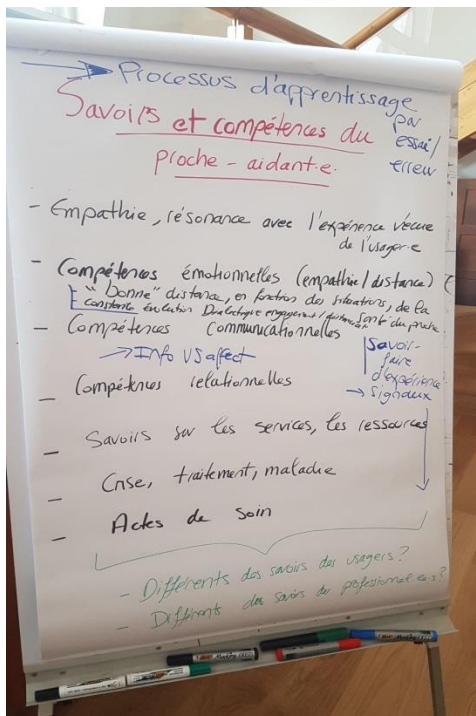 → Processus d'apprentissage
par
essai/
erreur
Savoirs et compétences du
proche-aidant·e.
- Empathie, résonance avec l'expérience vécue
de l'usager·e
- Compétences émotionnelles (empathie/distance)
"bonne" distance, en fonction des situations, de la
santé du proche
constante évolution Dialectique engagement/distanciation
- Compétences communicationnelles
→ Info VS affect
Savoir-
faire
d'expérience
→ signaux
- Compétences relationnelles
- Savoirs sur les services, les ressources
- Crise, traitement, maladie
- Actes de soin
- Différents des savoirs des usagers?
- Différents des savoirs des professionnel·le·s?